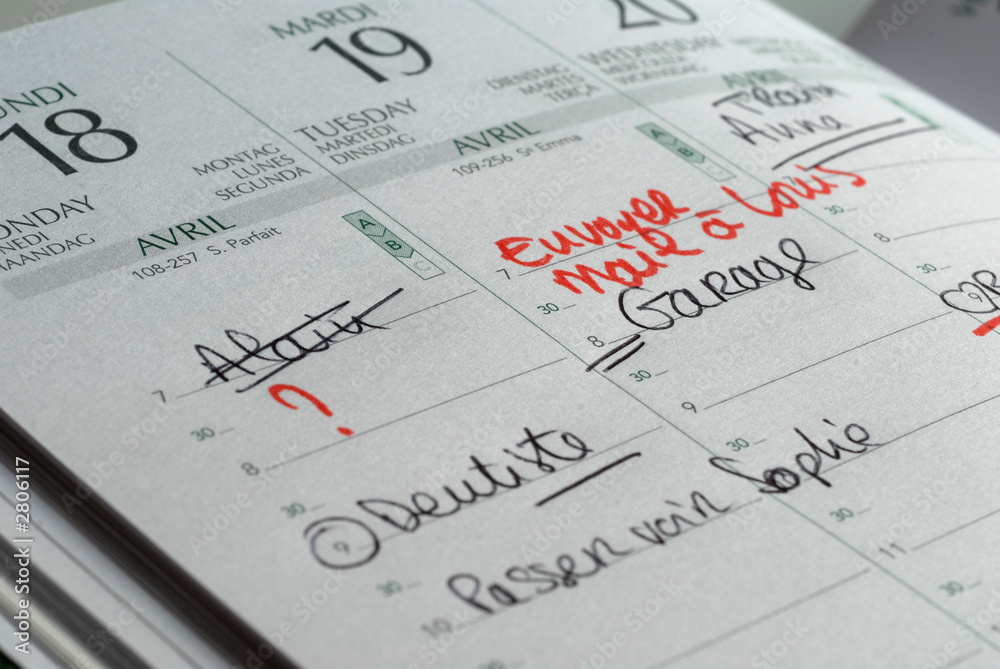 UNDI
18
MONTAG
LUNES
SEGUNDA
ONDAY
NEDI
MAANDAG
AVRIL
108-257 S. Parfait
A
B
C
Alain
7
?
30
8
30
9 Dentiste
30
10 Passer voir Sophie
30
MARDI
19
TUESDAY
MARTEDI
DINSDAG
DIENSTAG
MARTES
TERÇA
AVRIL
109-256 Se Emma
A
B
C
7 Envoyer
mail à Louis
30
8 Garage
30
9
30
30
11
30
20
WEDNESDAY
AVRIL
Anna
7
30
8
30
9
Adobe Stock | #2806117